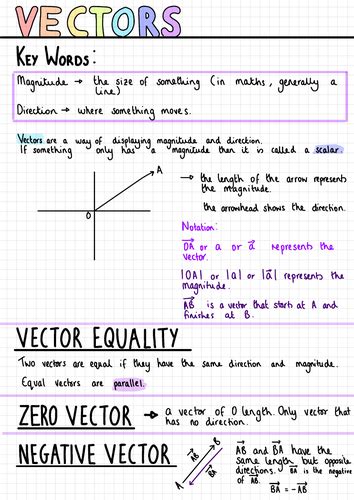 VECTORS
KEY WORDS:
Magnitude → the size of something (in maths, generally a
line)
Direction → where something moves.
Vectors are a way of displaying magnitude and direction.
If something only has a magnitude then it is called a scalar.
A
O
→ the length of the arrow represents
the magnitude.
the arrowhead shows the direction.
Notation:
O⃗A⃗ or a or a⃗ represents the
vector.
|OA| or |a| or |a⃗| represents the
magnitude.
A⃗B⃗ is a vector that starts at A and
finishes at B.
VECTOR EQUALITY
Two vectors are equal if they have the same direction and magnitude.
Equal vectors are parallel.
ZERO VECTOR → a vector of 0 length. Only vector that
has no direction.
NEGATIVE VECTOR
A
B
A⃗B⃗
B⃗A⃗
A⃗B⃗ and B⃗A⃗ have the
same length but opposite
directions. B⃗A⃗ is the negative
of A⃗B⃗.
B⃗A⃗ = -A⃗B⃗